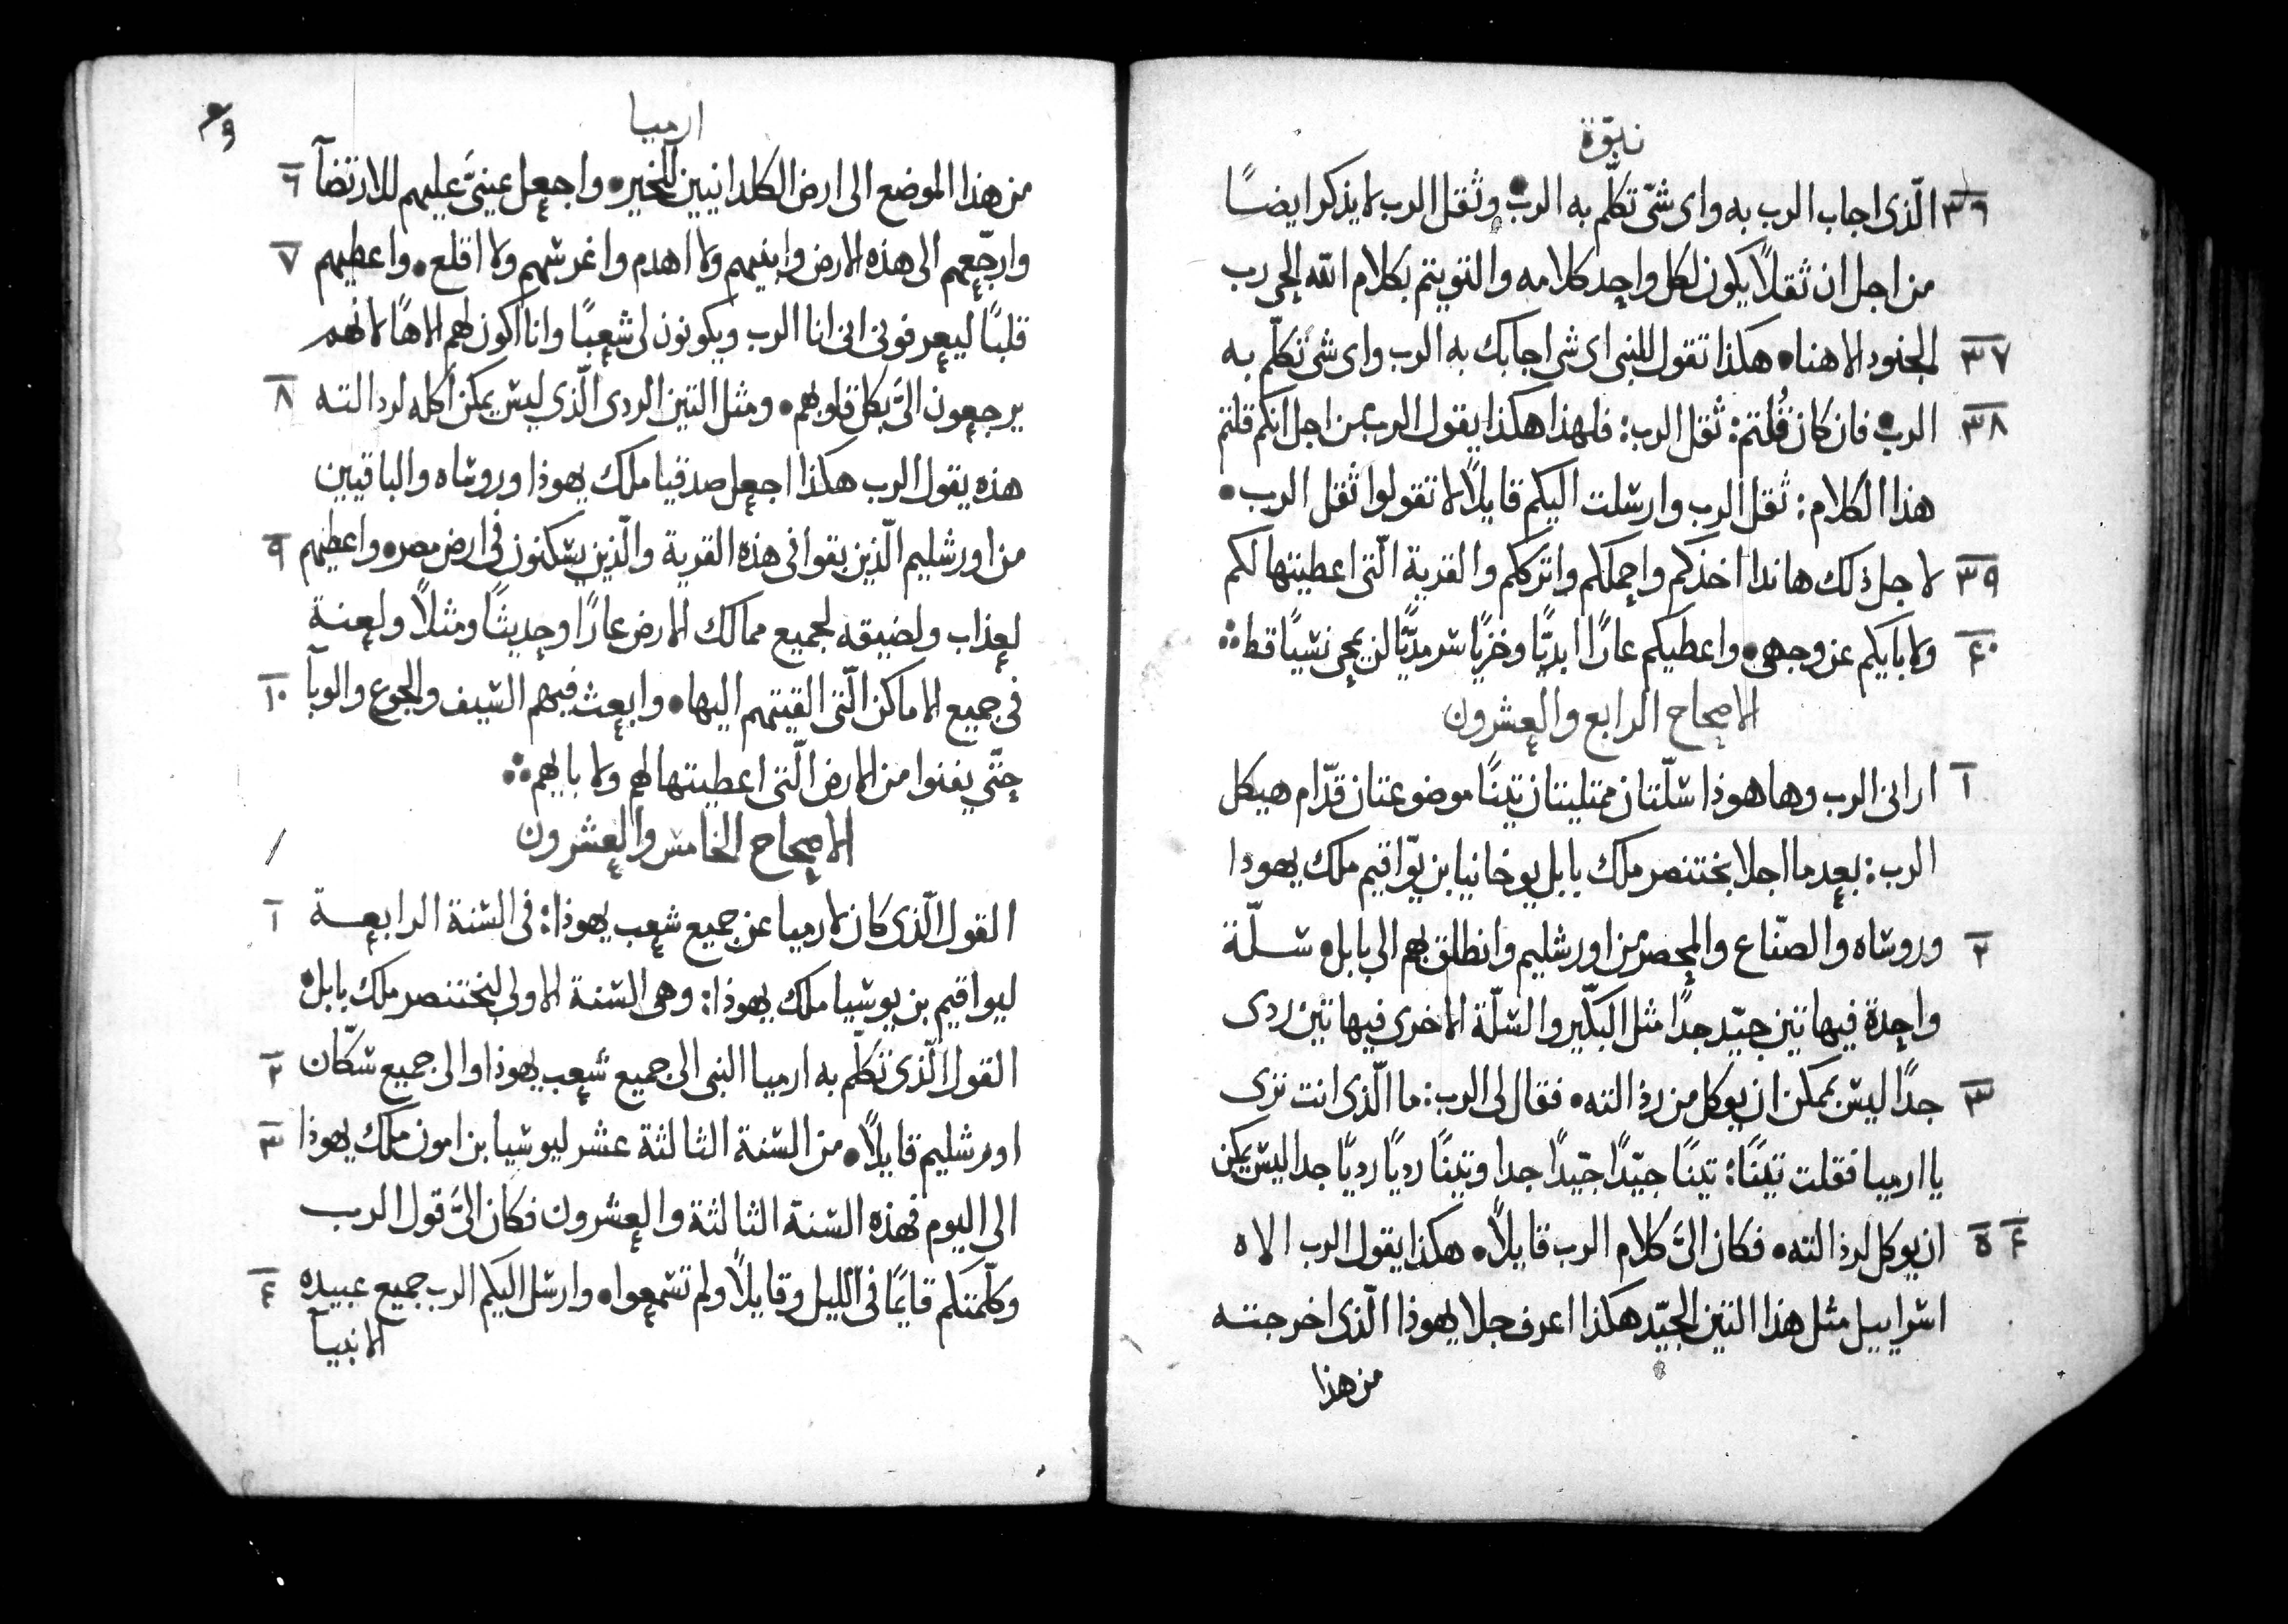 نبوّة
٣٦ الّذى اجاب الرب به واى شئ تكلّم به الرب• وثقل الرب لا يذكر ايضًا
من اجل ان ثقلاً يكون لكل واحد كلامه والتويتم بكلام اللّه الحى رب
٣٧ الجنود الاهنا• هكذا تقول للنبى اى شى اجابك به الرب واى شئ تكلّم به
٣٨ الرب• فان كان قُلتم: ثقل الرب: فلهذا هكذا يقول الرب من اجل انكم قلتم
هذا الكلام: ثقل الرب وارسلت اليكم قايلاً لا تقولوا ثقل الرب•
٣٩ لاجل ذلك هاندا اخذكم واحملكم واترككم والقرية الّتى اعطيتها لكم
٤٠ ولابايكم عن وجهى• واعطيكم عارًا ابديًّا وخزيًا سرمديًّا لن يمحى نسيًا قط
الاصحاح الرابع والعشرون
١ ارانى الرب وها هوذا سلّتان ممتليتان تينًا موضوعتان قدّام هيكل
الرب: بعدما اجلا بختنصر ملك بابل يوخانيا بن يوّاقيم ملك يهودا
٢ وروساه والصنّاع والمحصر من اورشليم وانطلق بهم الى بابل• سلّة
واحدة فيها تين جيّد جدًا مثل البكّير والسلّة الاخرى فيها تين ردى
٣ جدًا ليس يمكن ان يوكل من رذالته• فقال لى الرب: ما الّذى انت ترى
يا ارميا فقلت تينًا: تينًا جيّدًا جيّدًا جدا وتينًا رديًا رديًا جدا ليس يمكن
٤ ٥ ان يوكل لرذالته• فكان الىَّ كلام الرب قايلاً• هكذا يقول الرب الاه
اسراييل مثل هذا التين الجيّد هكذا اعرف جلا يهوذا الّذى اخرجته
من هذا
ارميا
من هذا الموضع الى ارض الكلدانيين للخير• واجعل عينىَّ عليهم للارتضآ ٦
وارجّعهم الى هذه الارض وابنيهم ولا اهدم واغرسهم ولا اقلع• واعطيهم ٧
قلبًا ليعرفونى انى انا الرب ويكونون لى شعبًا وانا اكون لهم الاهًا لانهم
يرجعون الىَّ بكل قلوبهم• ومثل التين الردى الّذي ليس يمكن اكله لرذالته ٨
هذه يقول الرب هكذا اجعل صدقيا ملك يهوذا وروساه والباقيين
من اورشليم الّذين بقوا فى هذه القرية والّذين يسكنون فى ارض مصر• واعطيهم ٩
لعذاب ولضيقه لجميع ممالك الارض عارًا وحديثًا ومثلاً ولعنة
فى جميع الاماكن الّتى القيتهم اليها• وابعث فيهم السيف والجوع والوبآ ١٠
حتّي يفنوا من الارض الّتى اعطيتها لهم ولابايهم
الاصحاح الخامس والعشرون
القول الّذى كان لارميا عن جميع شعب يهوذا: فى السنة الرابعة ١
ليواقيم بن يوشيا ملك يهوذا: وهى السنة الاولى لبختنصر ملك بابل•
القول الّذى تكلّم به ارميا النبى الى جميع شعب يهوذا والى جميع سكّان ٢
اورشليم قايلاً• من السنة الثالثة عشر ليوشيا بن امون ملك يهوذا ٣
الى اليوم فهذه السنة الثالثة والعشرون فكان الىَّ قول الرب
وكلّمتكم قايمًا فى الليل وقايلاً ولم تسمعوا• وارسل اليكم الرب جميع عبيده ٤
الانبيآ